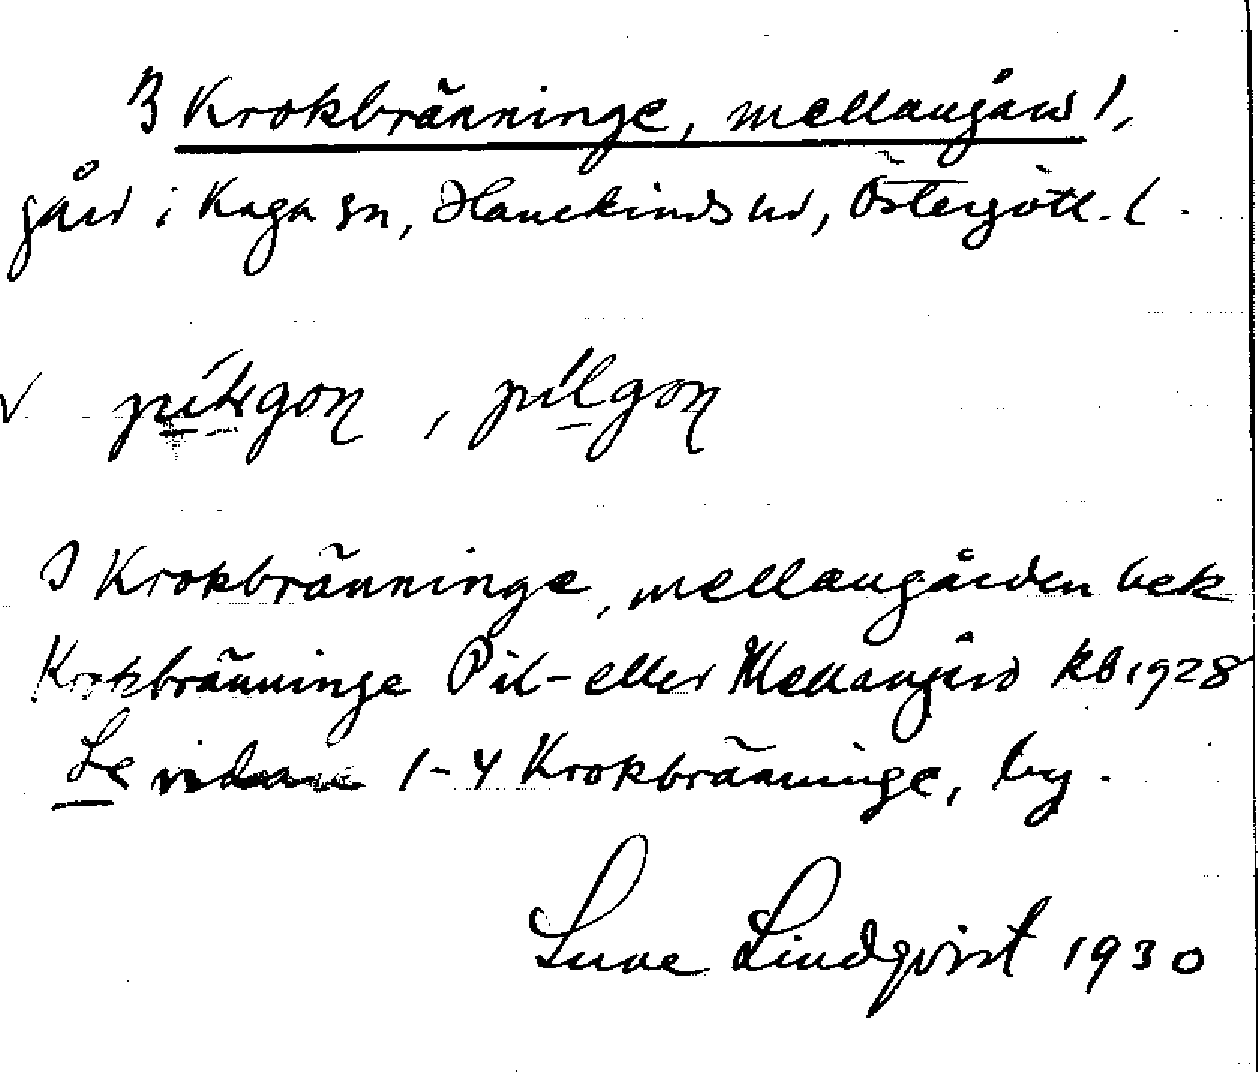 3 Krokbränninge, mellangård /,
gård i Kaga sn, Hanekinds hd, Östergötl. l.
, pilgoɳ
Krokbränninge, mellangården bek
Krokbränninge Pil- eller Mellangård kb 1928
Se vidare 1-4 Krokbränninge, by.
Sune Lindqvist 1930